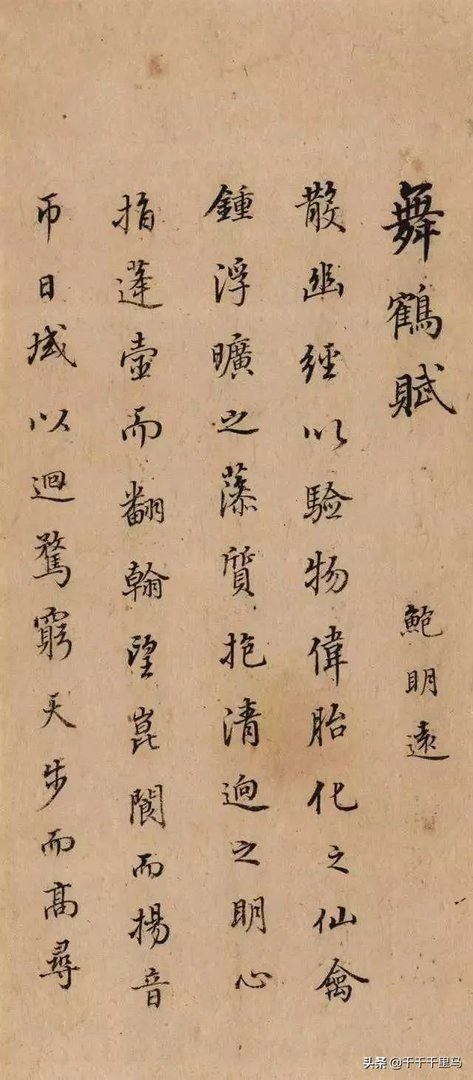 舞鶴賦
鮑明遠
散幽經以驗物偉胎化之仙禽
鍾浮曠之藻質抱清迥之明心
指蓬壺而翻翰望崑閬而揚音
帀日域以迴騖窮天步而高尋
头条@千千千里马